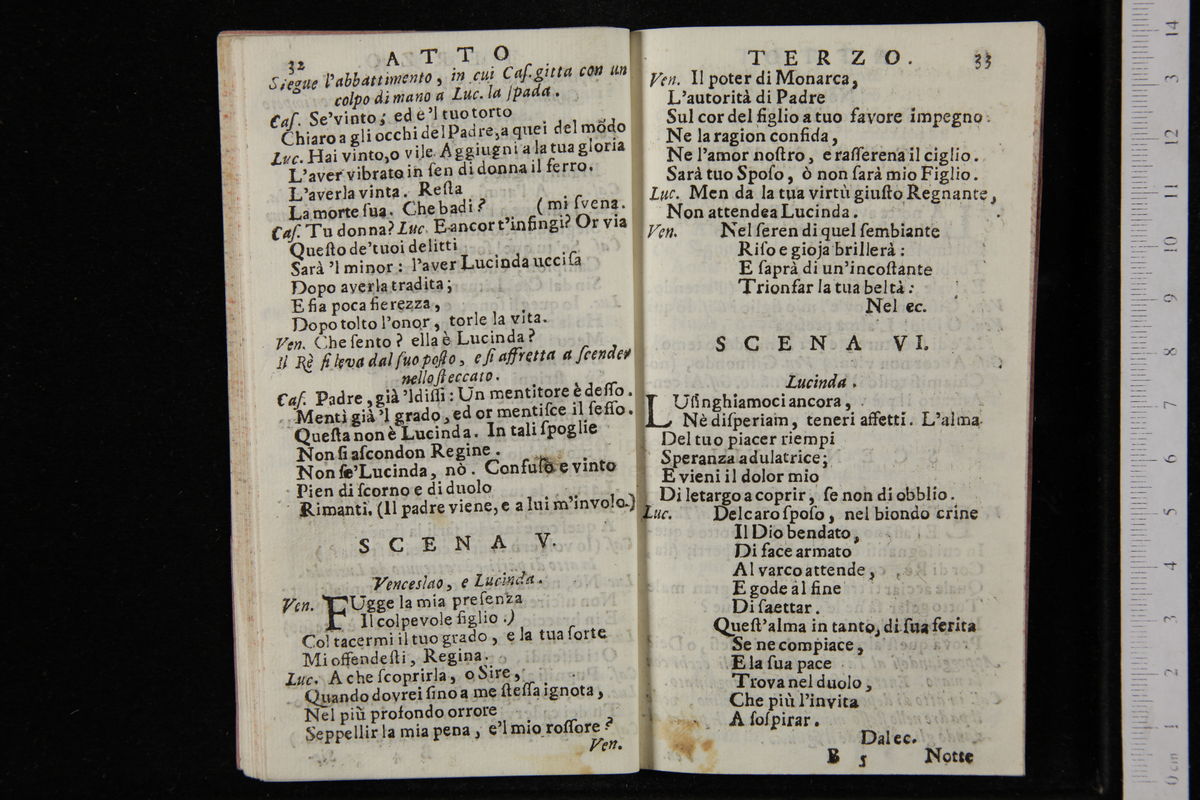 32 ATTO
Siegue l'abbattimento, in cui Caſ. gitta con un
colpo di mano a Luc. la ſpada.
Caſ. Se'vinto; ed è 'l tuo torto
Chiaro a gli occhi del Padre, a quei del mõdo
Luc. Hai vinto, o vile. Aggiugni a la tua gloria
L'aver vibrato in ſen di donna il ferro.
L'averla vinta. Reſta
La morte ſua. Che badi? (mi ſvena.
Caſ. Tu donna? Luc. E ancor t'infingi? Or via
Queſto de'tuoi delitti
Sarà 'l minor: l'aver Lucinda ucciſa
Dopo averla tradita;
E fia poca fierezza,
Dopo tolto l'onor, torle la vita.
Ven. Che ſento? ella è Lucinda?
Il Rè ſi leva dal ſuo poſto, e ſi affretta a ſcender
nello ſteccato.
Caſ. Padre, già 'l diſſi: Un mentitore è deſſo.
Mentì già 'l grado, ed or mentiſce il ſeſſo.
Queſta non è Lucinda. In tali ſpoglie
Non ſi aſcondon Regine.
Non ſe' Lucinda, nò. Confuſo e vinto
Pien di ſcorno e di duolo
Rimanti. (Il padre viene, e a lui m'involo.)
SCENA V.
Venceslao, e Lucinda.
Ven. FUgge la mia preſenza
Il colpevole figlio.)
Col tacermi il tuo grado, e la tua ſorte
Mi offendeſti, Regina.
Luc. A che ſcoprirla, o Sire,
Quando dovrei ſino a me ſteſſa ignota,
Nel più profondo orrore
Seppellir la mia pena, e'l mio roſſore?
Ven.
TERZO. 33
Ven. Il poter di Monarca,
L'autorità di Padre
Sul cor del figlio a tuo favore impegno.
Ne la ragion confida,
Ne l'amor noſtro, e raſſerena il ciglio.
Sarà tuo Spoſo, ò non ſarà mio Figlio.
Luc. Men da la tua virtù giuſto Regnante,
Non attendea Lucinda.
Ven. Nel ſeren di quel ſembiante
Riſo e gioja brillerà:
E ſaprà di un'incoſtante
Trionfar la tua beltà:
Nel ec.
SCENA VI.
Lucinda.
LUſinghiamoci ancora,
Nè diſperiam, teneri affetti. L'alma
Del tuo piacer riempi
Speranza adulatrice;
E vieni il dolor mio
Di letargo a coprir, ſe non di obblio.
Luc. Del caro ſpoſo, nel biondo crine
Il Dio bendato,
Di face armato
Al varco attende,
E gode al fine
Di ſaettar.
Queſt'alma in tanto, di ſua ferita
Se ne compiace,
E la ſua pace
Trova nel duolo,
Che più l'invita
A ſoſpirar.
Dal ec.
B 5 Notte
0 cm 1 2 3 4 5 6 7 8 9 10 11 12 13 14